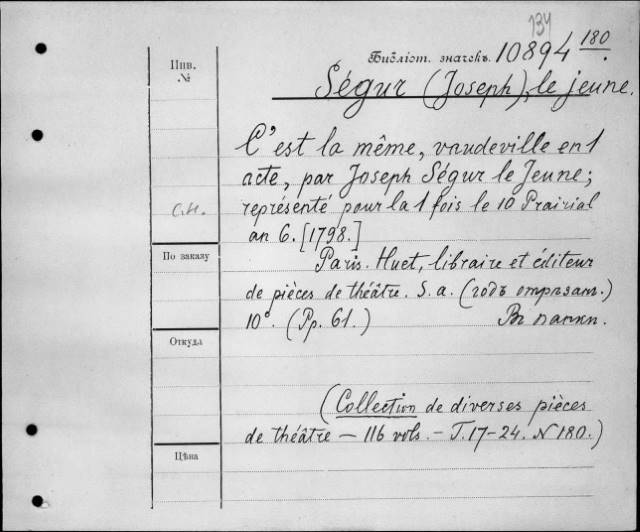 134
Библіот. значекъ. 10894 180.
Инв.
№
Ségur (Joseph), le jeune.
C'est la même, vaudeville en 1
acte, par Joseph Ségur le Jeune;
représenté pour la 1 fois le 10 Prairial
an 6. [1798.]
С.Н.
По заказу
Paris. Huet, libraire et éditeur
de pièces de théâtre. S. a. (годъ отрѣзан.)
10°. (Pp. 61.) Въ папкѣ.
Откуда
(Collection de diverses pièces
de théâtre — 116 vols. — T. 17-24. N 180.)
Цѣна